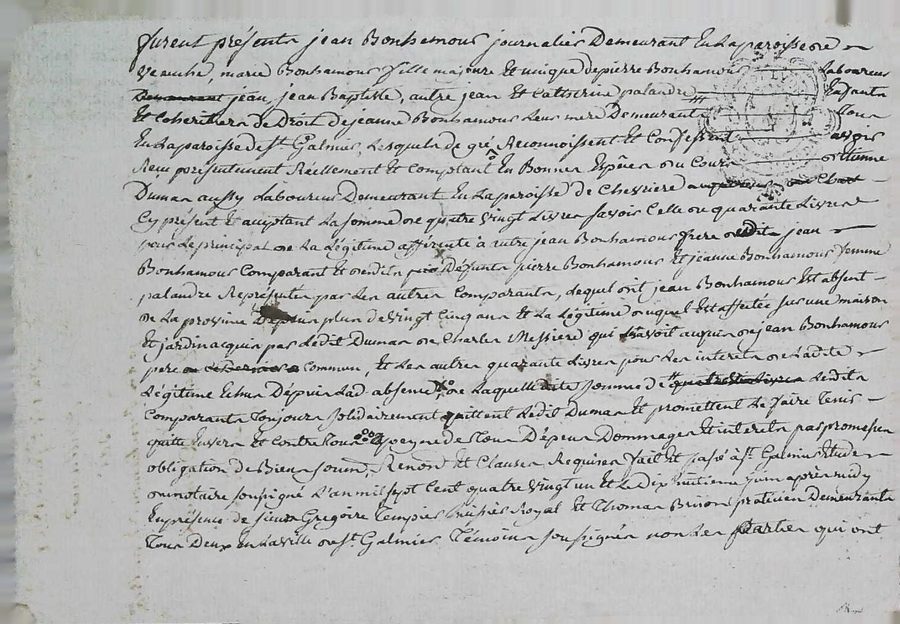 furent présents jean Bonhamour journalier Demeurant En La paroisse de
Veauche, marie Bonhamour fille majeure Et unique de pierre Bonhamour Laboureur
Demeurant jean, jean Baptiste, autre jean Et Catherine palandre Enfants
Et Coheritiers de Droit de jeanne Bonhamour Leur mere Demeurants Tous
En La paroisse de St Galmier, Lesquels de gré Reconnoissent Et Confessent avoir
Reçu présentement Réellement Et Comptant En Bonnes Espêces du Cours Etienne
Dumas aussy Laboureur Demeurant En La paroisse de Chevriere
Cy présent Et acceptant La somme de quatre vingt Livres savoir Celle de quarante Livres
pour Le principal de La Légitime afférente à autre jean Bonhamour frere dudit jean
Bonhamour Comparant Et dudit Défunts pierre Bonhamour Et jeanne Bonhamour femme
palandre Représentés par Les autres Comparants, duquel dit jean Bonhamour Est absent
de La province Depuis plus de vingt Cinq ans Et La Légitime duquel Est affectée sur une maison
Et jardin acquis par Ledit Dumas de Charles Messiere qui L'avoit acquis de jean Bonhamour
pere Commun, Et Les autres quarante Livres pour Les interets de Ladite
Légitime Echus Dépuis Lad absence, de Laquelle dite somme de quatre vingt Livres Lesdits
Comparants Toujours solidairement quittent Ledit Dumas Et promettent Le faire Tenir
quitte Envers Et Contre Tous a peyne de Tous Dépens Dommages Et interets par promesse
obligation de Biens soum, Renon Et Clauses Requises fait Et passé à St Galmier Etude
du notaire soussigné L'an mil sept Cent quatre vingt un Et Le Dix huitieme juin après midy
En présence de sieur Gregoire Tempier huissier Royal Et Thomas Brison praticien Demeurants
Tous Deux En La ville de St Galmier Témoins soussignés non Les parties qui ont